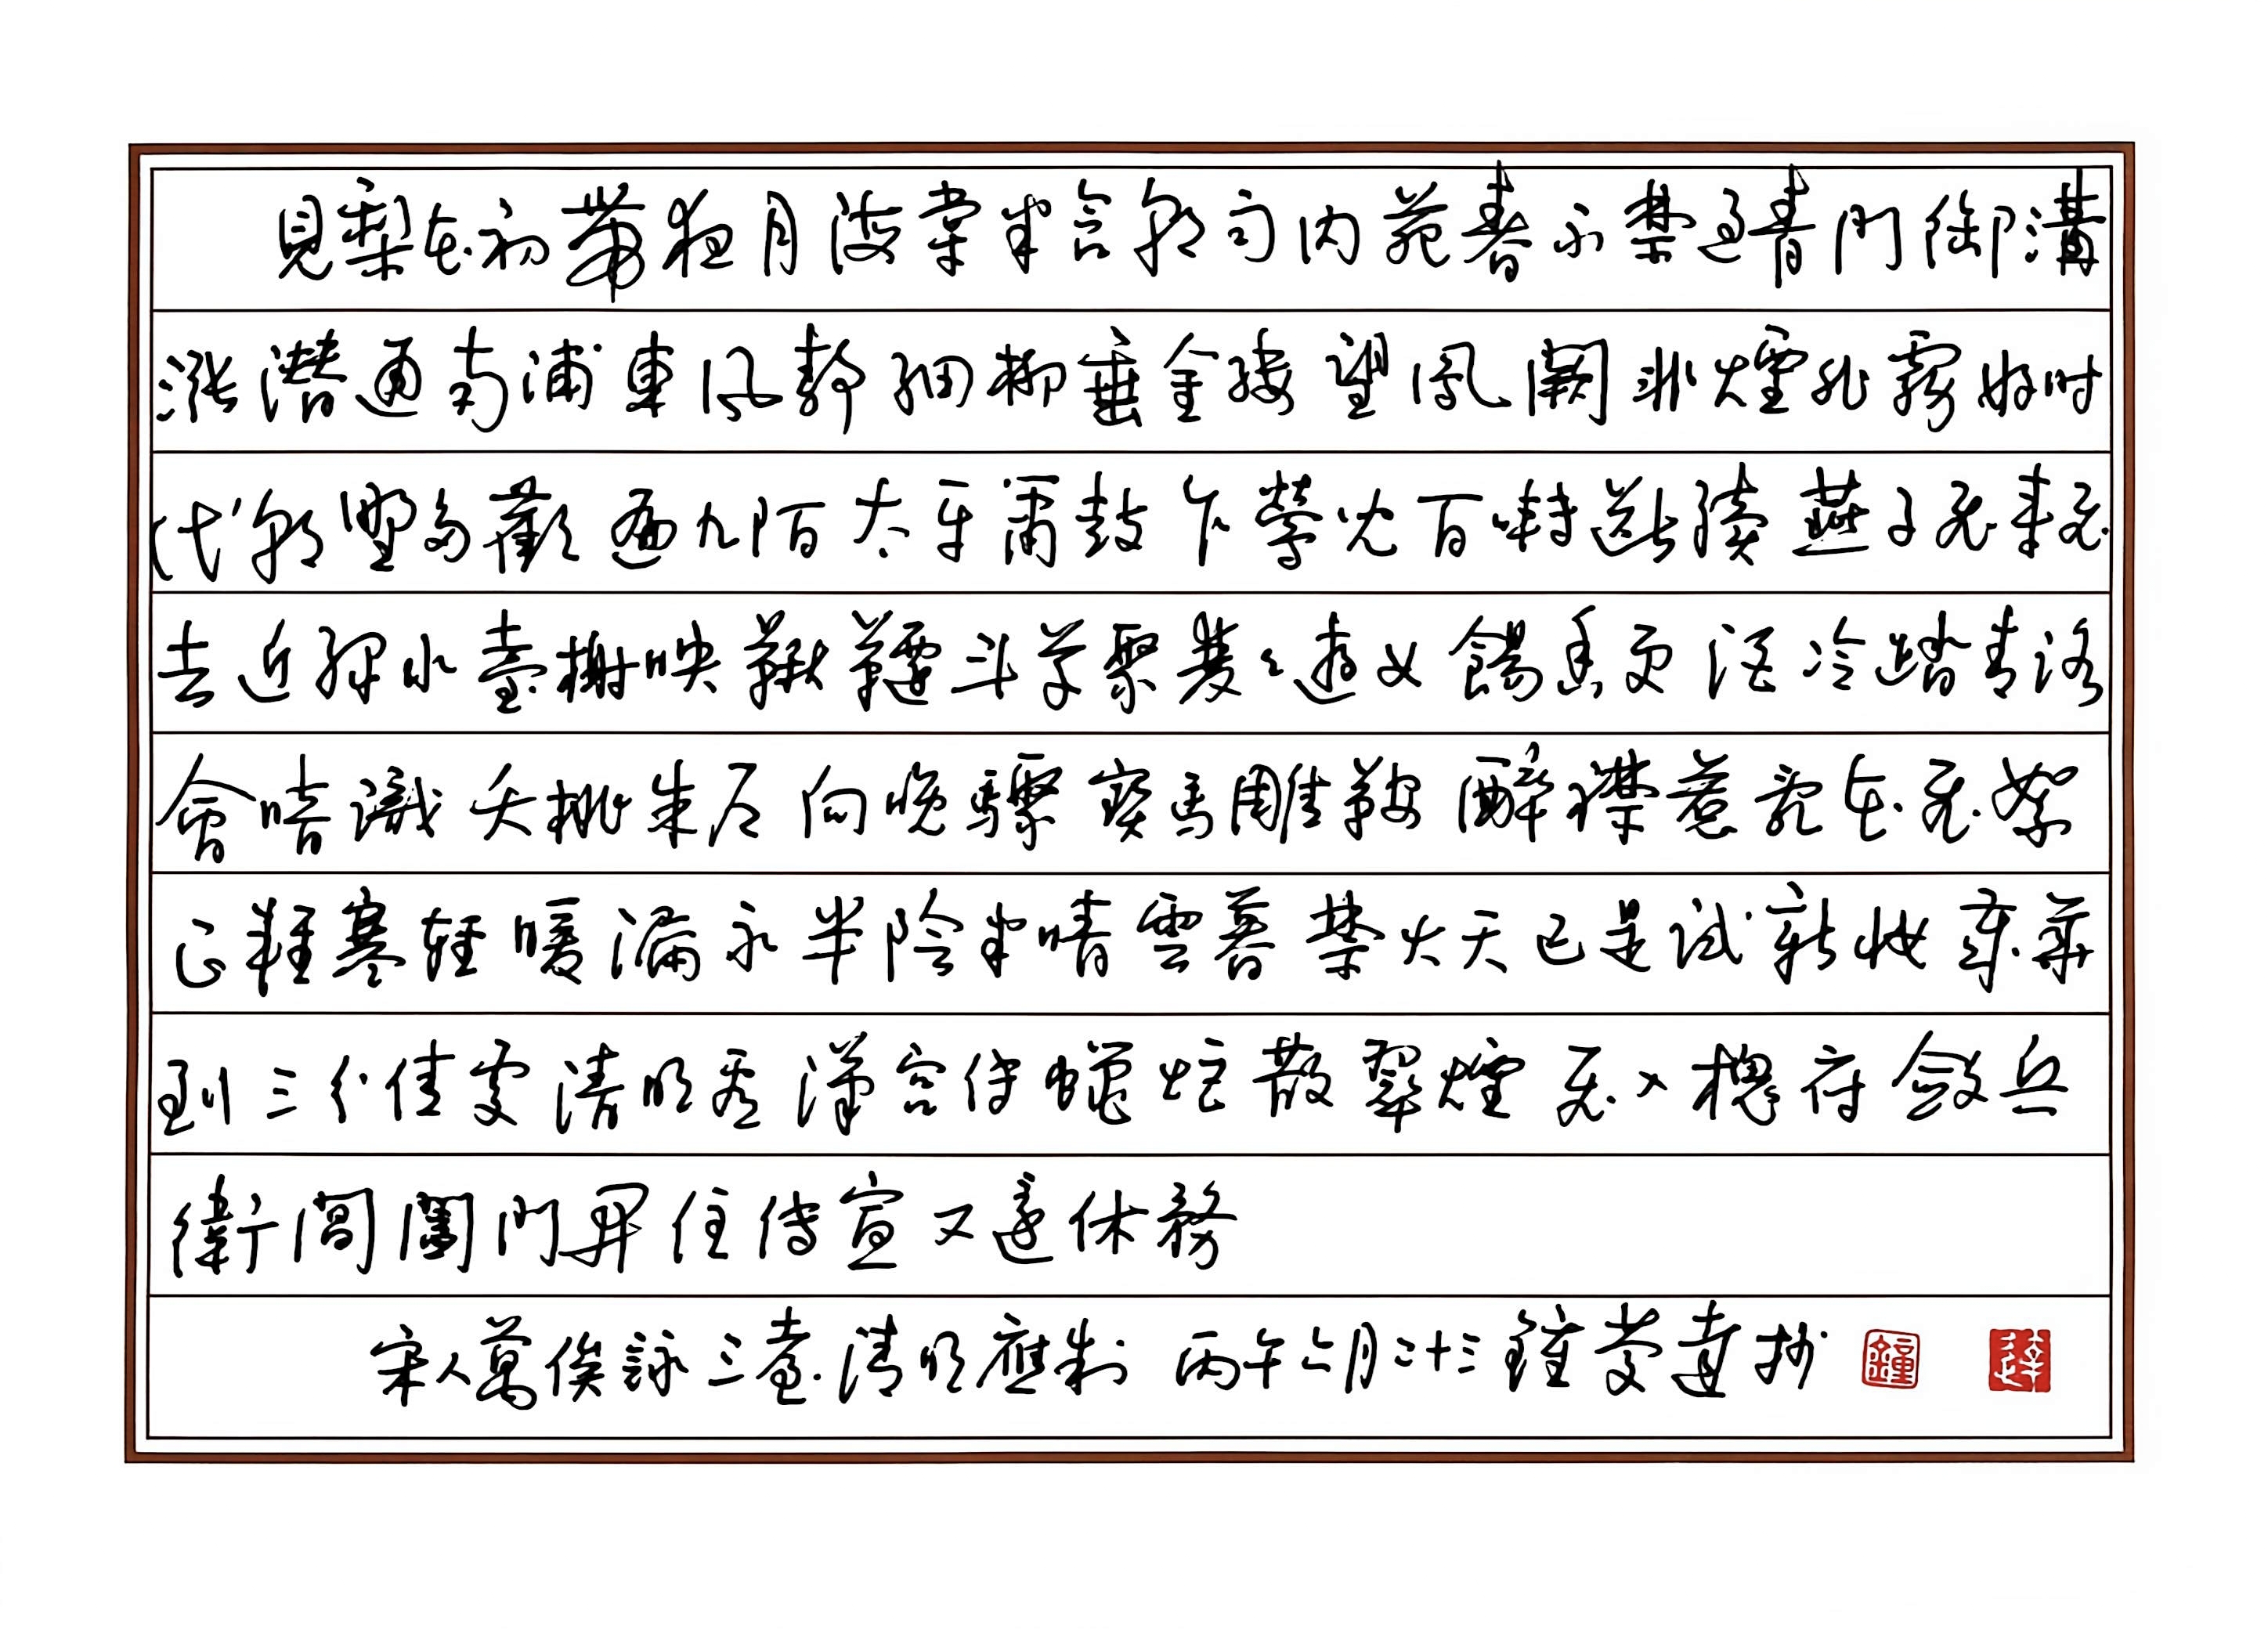 見梨花初帶夜月海棠半含朝雨內苑春不禁過青門御溝
漲潛通南浦東風靜細柳垂金縷望鳳闕非煙非霧好时
代朝野多歡遍九陌太平簫鼓乍鶯兒百囀斷續燕子飛來飛
去近綠水臺榭映鞦韆斗草聚雙〻遊女餳香更酒冷踏青路
會暗識夭桃朱戶向晚驟寶馬雕鞍醉襟惹亂花飛絮
正輕寒輕暖漏永半陰半晴雲暮禁火天已是試新妝歲華
到三分佳處清明看漢宮傳蠟炬散翠煙飛入槐府斂兵
衛閶闔門開住傳宣又還休務
宋人萬俟詠三臺清明應制 丙午二月二十三鍾慶達抄 鍾 達